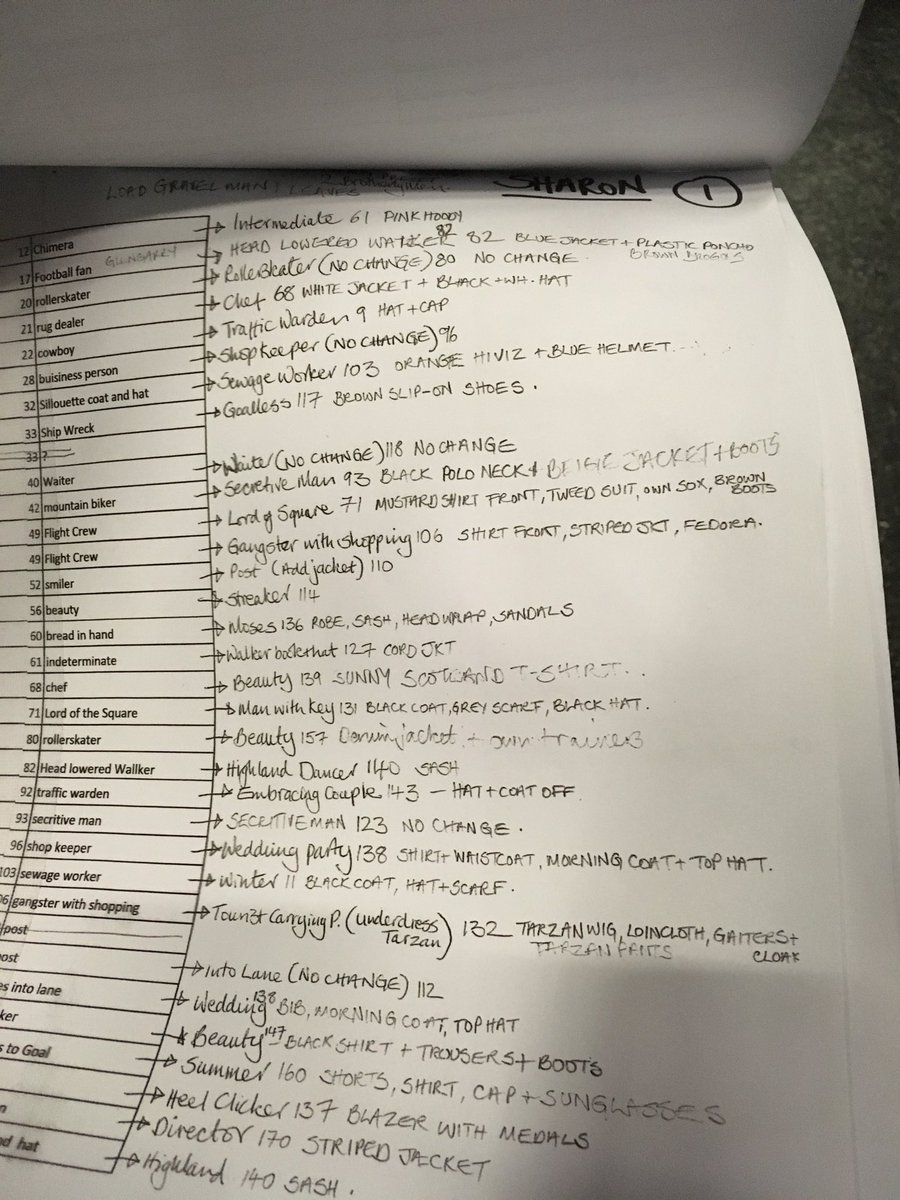 LORD GRAVELMAN: LEAVES
SHARON 1
12 Chimera
17 Football fan
20 rollerskater
21 rug dealer
22 cowboy
28 buisiness person
32 Sillouette coat and hat
33 Ship Wreck
33 ?
40 Waiter
42 mountain biker
49 Flight Crew
49 Flight Crew
52 smiler
56 beauty
60 bread in hand
61 indeterminate
68 chef
71 Lord of the Square
80 rollerskater
82 Head lowered Wallker
92 traffic warden
93 secritive man
96 shop keeper
103 sewage worker
06 gangster with shopping
post
ost
es into lane
ker
s to Goal
n
nd hat
→ Intermediate 61 PINK HOODY
→ HEAD LOWERED WALKER 82 82 BLUE JACKET + PLASTIC PONCHO
BROWN BROGUES
→ Rollerskater (NO CHANGE) 80 NO CHANGE.
→ Chef 68 WHITE JACKET + BLACK + WH. HAT
→ Traffic Warden 9 HAT + CAP
→ Shop Keeper (NO CHANGE) 96
→ Sewage Worker 103 ORANGE HIVIZ + BLUE HELMET.
→ Goalless 117 BROWN SLIP-ON SHOES.
→ Waiter (NO CHANGE) 118 NO CHANGE
→ Secretive Man 93 BLACK POLO NECK + BEIGE JACKET + BOOTS
→ Lord of Square 71 MUSTARD SHIRT FRONT, TWEED SUIT, OWN SOX, BROWN BOOTS
→ Gangster with shopping 106 SHIRT FRONT, STRIPED JKT, FEDORA.
→ Post (Add jacket) 110
→ Streaker 114
→ Moses 136 ROBE, SASH, HEADWRAP, SANDALS
→ Walker back that 127 CORD JKT
→ Beauty 139 SUNNY SCOTLAND T-SHIRT.
→ Man with key 131 BLACK COAT, GREY SCARF, BLACK HAT.
→ Beauty 157 Denim jacket + own trainers
→ Highland Dancer 140 SASH
→ Embracing Couple 143 – HAT + COAT OFF.
→ SECRITIVE MAN 123 NO CHANGE.
→ Wedding party 138 SHIRT + WAISTCOAT, MORNING COAT + TOP HAT.
→ Winter 11 BLACK COAT, HAT + SCARF.
→ Tourist Carrying P. (underdress Tarzan) 132 TARZAN WIG, LOINCLOTH, GAITERS +
TARZAN PANTS CLOAK
→ Into Lane (NO CHANGE) 112
→ Wedding 138 BIB, MORNING COAT, TOP HAT
→ Beauty 147 BLACK SHIRT + TROUSERS + BOOTS
→ Summer 160 SHORTS, SHIRT, CAP + SUNGLASSES
→ Heel Clicker 137 BLAZER WITH MEDALS
→ Director 170 STRIPED JACKET
→ Highland 140 SASH.